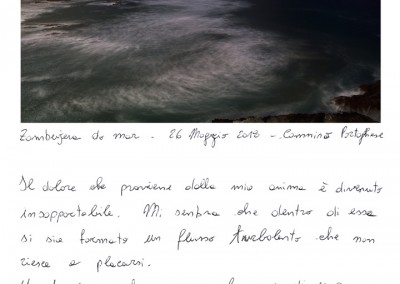 Zambujera do mar - 26 Maggio 2017 - Cammino Portoghese
Il dolore che proviene dalla mia anima è divenuto
insopportabile. Mi sembra che dentro di essa
si sia formato un flusso turbolento che non
riesce a placarsi.